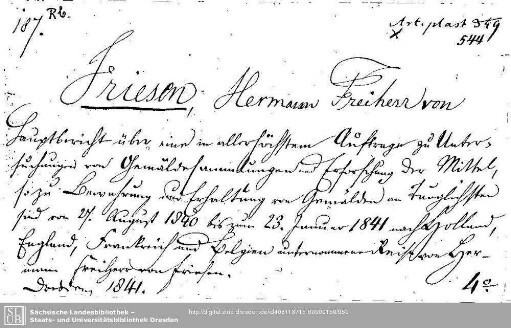 187. Rb.
Art. plast 549
x 544
Friesen, Hermann Freiherr von
Hauptbericht über eine in allerhöchstem Auftrage zu Unter-
suchungen von Gemäldesammlungen und Erforschung der Mittel,
so zu Bewahrung und Erhaltung von Gemälden am Tauglichsten
sind von 27. August 1840 bis zum 23. Januar 1841 nach Holland,
England, Frankreich und Belgien unternommene Reise von Her-
mann Freiherr von Friesen.
Dresden, 1841.
4°
SLUB
Sächsische Landesbibliothek –
Staats- und Universitätsbibliothek Dresden